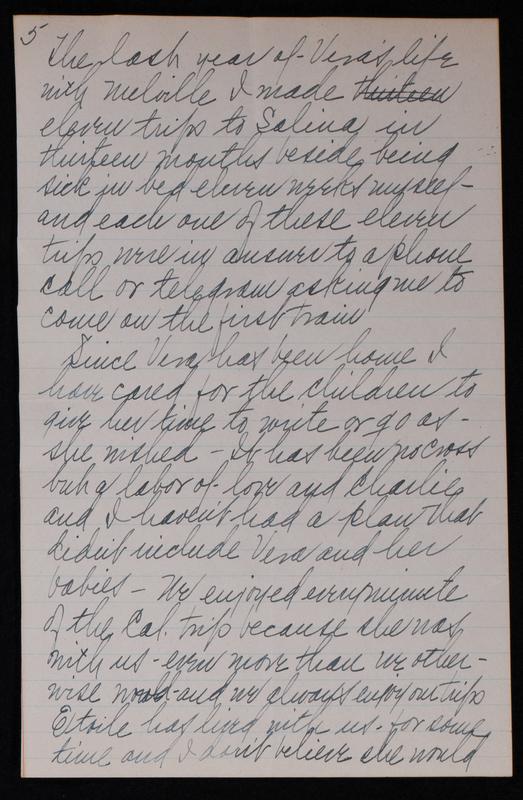 5
The last year of Vera's life
with Melville I made thirteen
eleven trips to Salina in
thirteen months beside being
sick in bed eleven weeks myself -
and each one of these eleven
trips were in answer to a phone
call or telegram asking me to
come on the first train
Since Vera has been home I
have cared for the children to
give her time to write or go as -
she wished - It has been no cross
but a labor of love and Charlie
and I haven't had a plan that
didn't include Vera and her
babies - We enjoyed every minute
of the Cal. trip because she was
with us - even more than we other-
wise would - and we always enjoy our trips
Etoile has lived with us for some
time and I don't believe she would